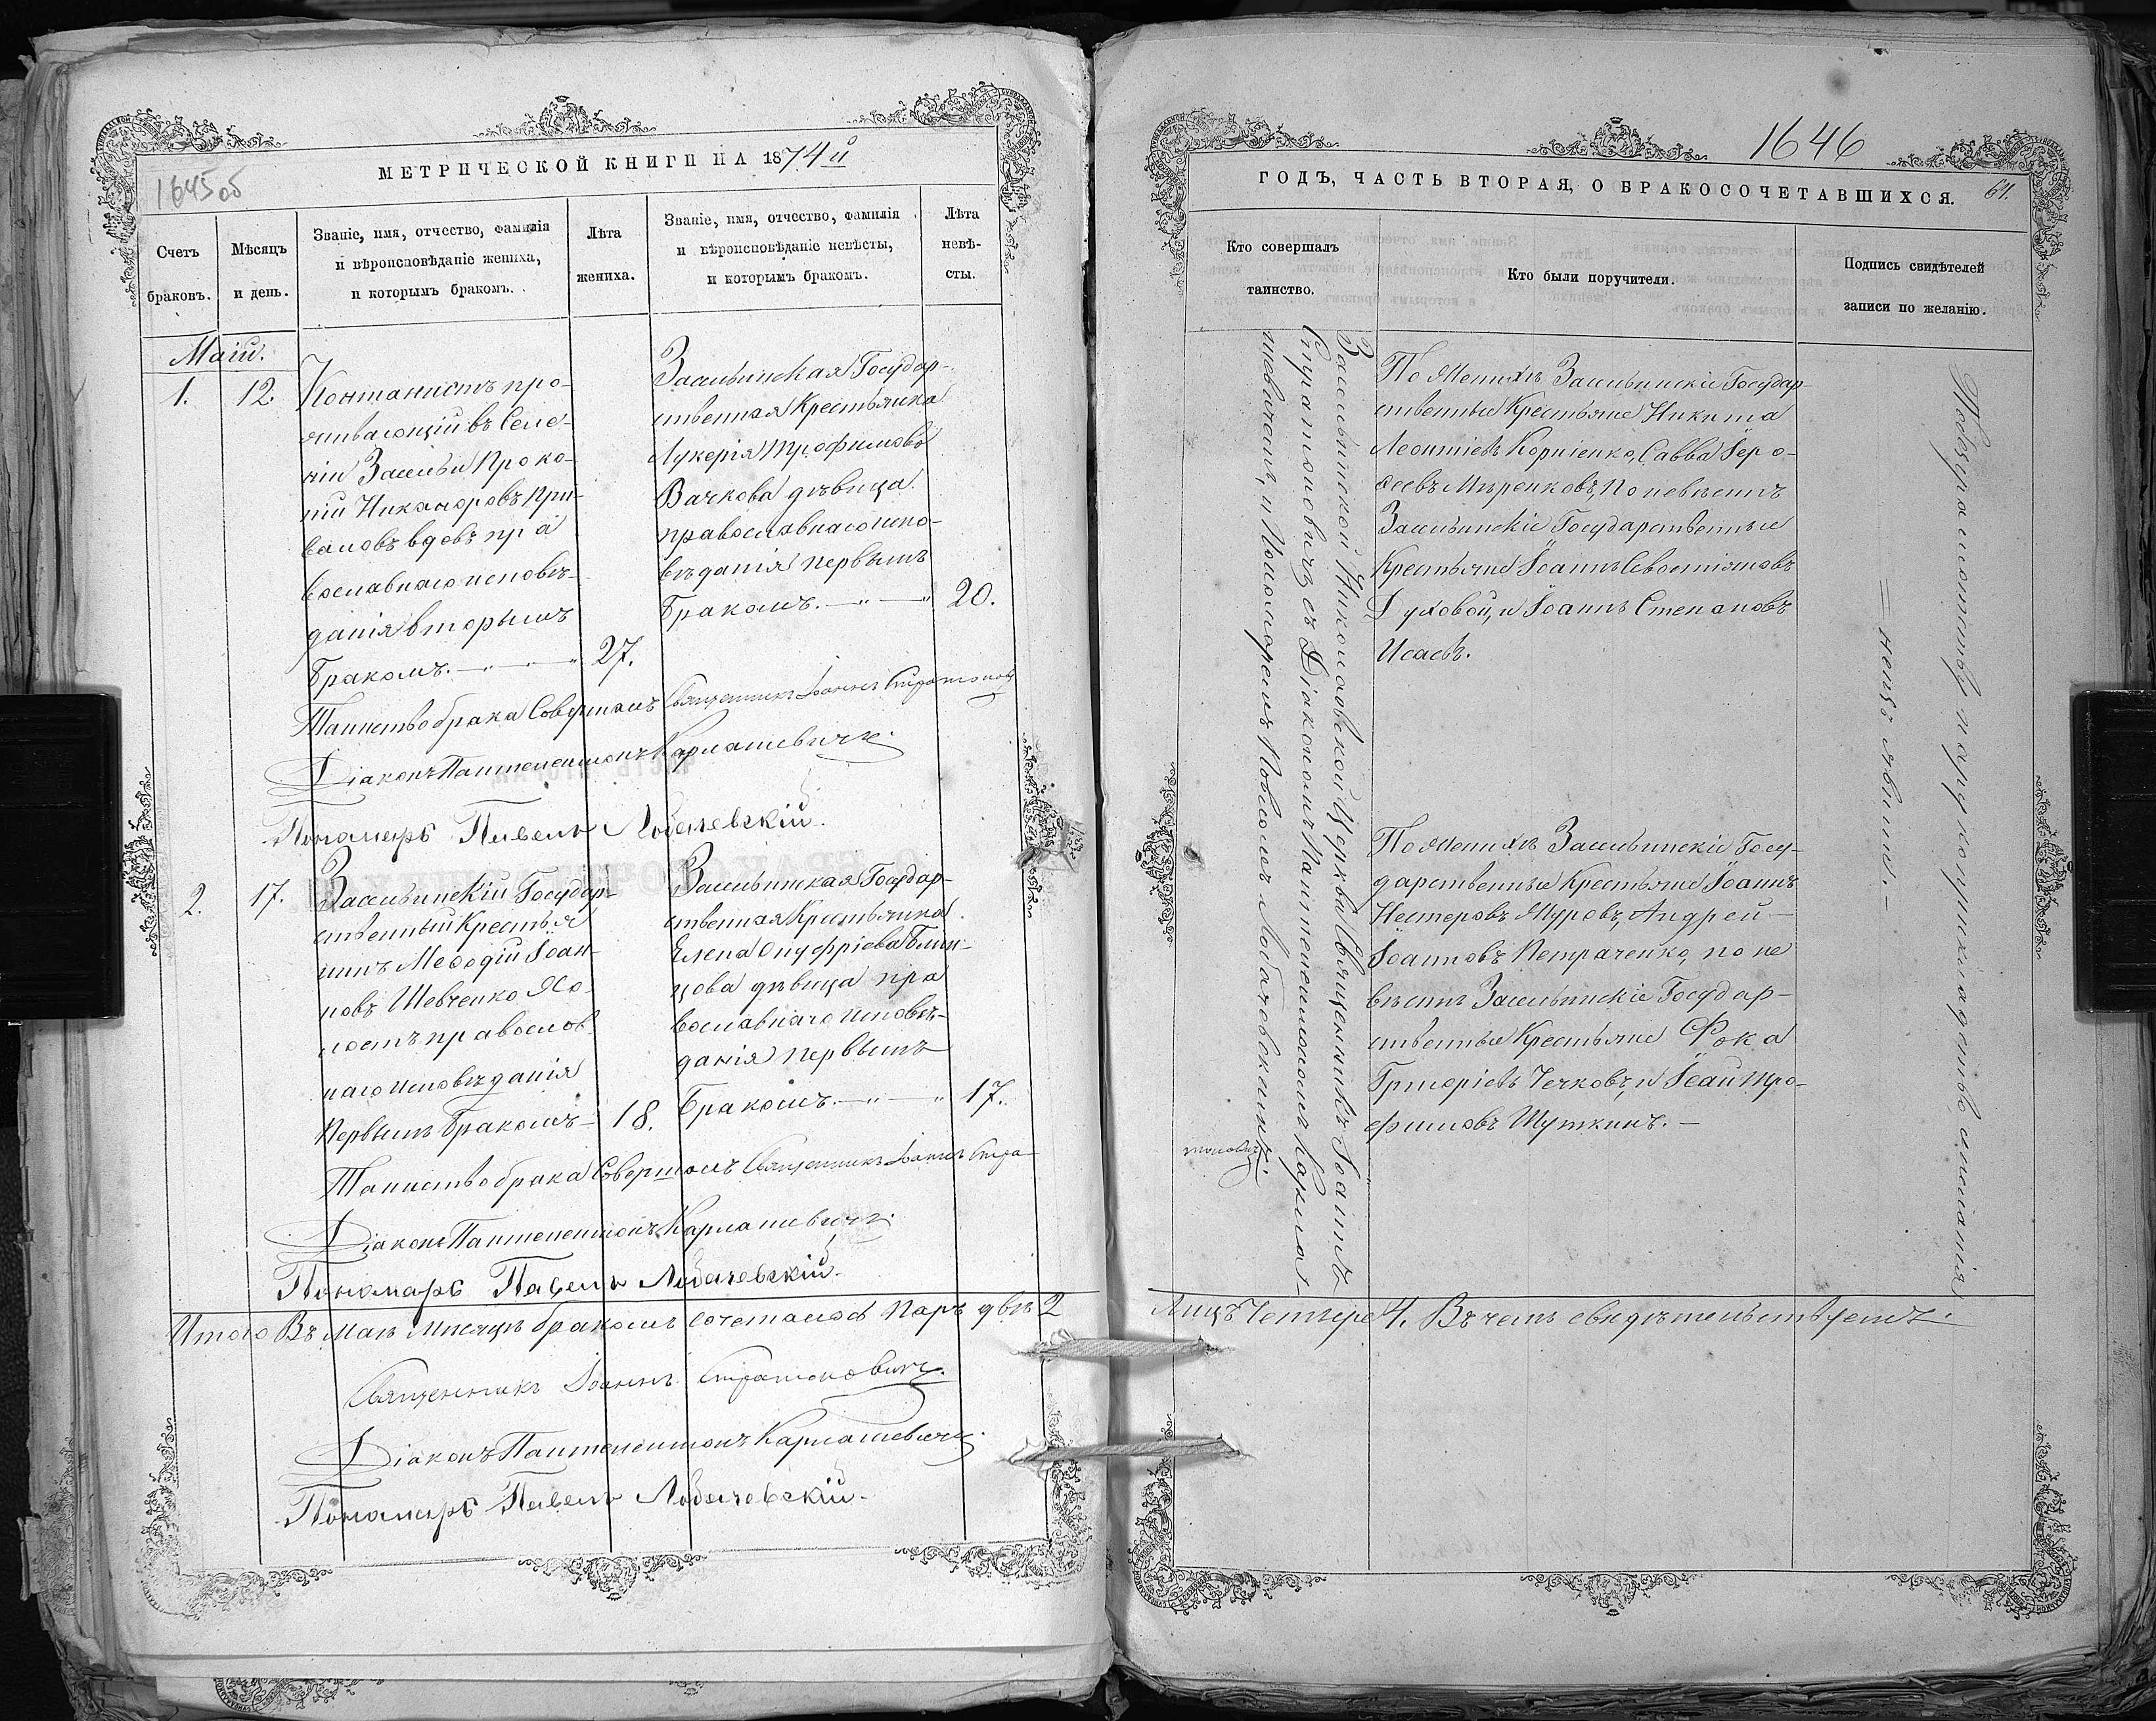 МЕТРИЧЕСКОЙ КНИГИ НА 1874й
1645об
Счетъ браковъ.
Мѣсяцъ и день.
Званіе, имя, отчество, фамилія
и вѣроисповѣданіе жениха,
и которымъ бракомъ.
Лѣта
жениха.
Званіе, имя, отчество, фамилія
и вѣроисповѣданіе невѣсты,
и которымъ бракомъ.
Лѣта
невѣ-
сты.
Маій.
1.
12.
Контанистъ про-
живающій въ Селе-
ніи Засельи Проко-
пій Никаноровъ При-
валовъ вдовъ пра
вославнаго исповѣ-
данія вторымъ
бракомъ.
27.
Засельинская Государ-
ственная Крестьянка
Лукерія Трофимова
Вачкова дѣвица
православнаго испо-
вѣданія первымъ
бракомъ.
20.
Таинство брака Совершалъ Священникъ Іоаннъ Стратоновъ
Діаконъ Пантелеимонъ Кармашевичъ.
Пономарь Павелъ Лобачевскій.
2.
17.
Засельинскій Государ-
ственный Крестья
нинъ Меѳодій Іоан-
новъ Шевченко Хо-
лостъ православ
наго исповѣданія
Первымъ бракомъ
18.
Засельинская Государ-
ственная Крестьянка
Елена Онуфріева Блин-
цова дѣвица пра
вославнаго исповѣ-
данія первымъ
бракомъ.
17.
Таинство брака Совершалъ Священникъ Іоаннъ Стра-
Діаконъ Пантелеимонъ Кармашевичъ.
Пономарь Павелъ Лобачевскій.
Итого Въ Маѣ Мѣсяцѣ бракомъ сочеталось Паръ двѣ 2
Священникъ Іоаннъ Стратоновичъ.
Діаконъ Пантелеимонъ Кармашевичъ.
Пономарь Павелъ Лобачевскій.
1646
ГОДЪ, ЧАСТЬ ВТОРАЯ, О БРАКОСОЧЕТАВШИХСЯ.
61.
Кто совершалъ
таинство.
Кто были поручители.
Подпись свидѣтелей
записи по желанію.
Засельинской Николаевской Церкви Священникъ Іоаннъ
Стратоновичъ съ Діакономъ Пантелеимономъ Карма-
шевичемъ, и Пономаремъ Павломъ Лобачевскимъ.
По Женихѣ Засельинскіе Государ-
ственные Крестьяне Никита
Леонтіевъ Корніенко, Савва Іеро-
ѳеевъ Миренковъ, По невѣстѣ
Засельинскіе Государственные
Крестьяне Іоаннъ Севостіяновъ
Духовой, и Іоаннъ Степановъ
Исаевъ.
По Женихѣ Засельинскіе Госу-
дарственные Крестьяне Іоаннъ
Нестеровъ Журовъ, Андрей
Іоанновъ Петраченко, по не
вѣстѣ Засельинскіе Государ-
ственные Крестьяне Фока
Григоріевъ Чечковъ, и Іоан Тро-
фимовъ Шуткинъ.
тоновичъ
По безграмотству
нихъ явил.
Лицъ Четыре 4. Въ чемъ свидѣтельствуемъ.